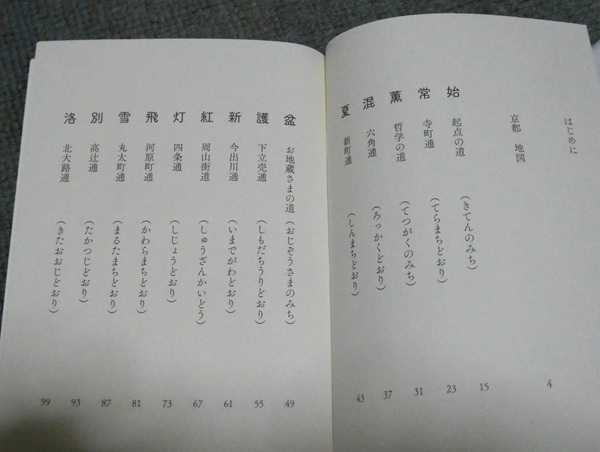 はじめに
京都 地図 4
始 起点の道 (きてんのみち) 15
常 寺町通 (てらまちどおり) 23
薫 哲学の道 (てつがくのみち) 31
混 六角通 (ろっかくどおり) 37
夏 新町通 (しんまちどおり) 43
盆 お地蔵さまの道 (おじぞうさまのみち) 49
護 下立売通 (しもだちうりどおり) 55
新 今出川通 (いまでがわどおり) 61
紅 周山街道 (しゅうざんかいどう) 67
灯 四条通 (しじょうどおり) 73
飛 河原町通 (かわらまちどおり) 81
雪 丸太町通 (まるたまちどおり) 87
別 高辻通 (たかつじどおり) 93
洛 北大路通 (きたおおじどおり) 99